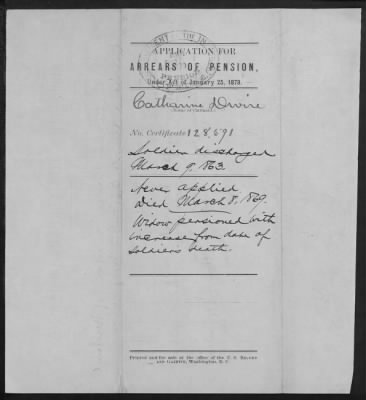 APPLICATION FOR
ARREARS OF PENSION,
Under Act of January 25, 1879.
Catharine Divire
No. Certificate 128,591
Soldier discharged
March 9, 1863.
Never applied
Died March 8, 1869.
Widow pensioned with
increase from date of
soldiers death.
Printed and for sale at the office of the
AND GAZETTE, Washington, D. C.